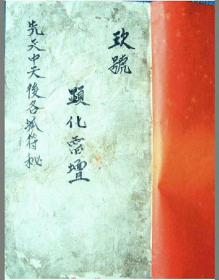 玖號
顯化雷壇
先天中天後各派符秘